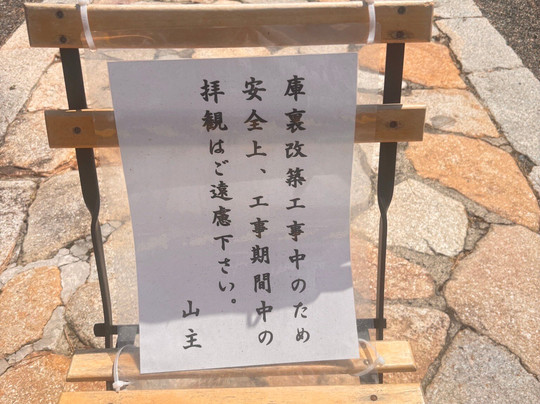 庫裏改築工事中のため
安全上、工事期間中の
拝観はご遠慮下さい。
山主